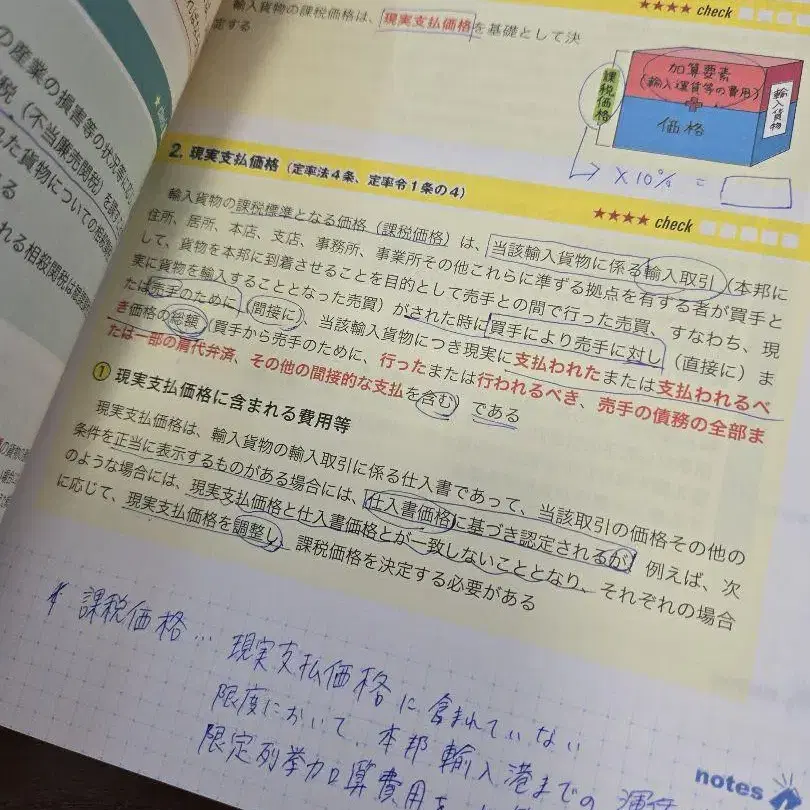 輸入貨物の課税価格は、現実支払価格を基礎として決
定する
★★★★ check
課税価格
加算要素
(輸入運賃等の費用)
+
価格
輸入貨物
→ ×10% =
の産業の損害等の状況等に応
税(不当廉売関税)を課すこ
れた貨物についての相殺関税
る
れる相殺関税は
2. 現実支払価格(定率法4条、定率令1条の4)
★★★★ check
輸入貨物の課税標準となる価格(課税価格)は、当該輸入貨物に係る輸入取引(本邦に
住所、居所、本店、支店、事務所、事業所その他これらに準ずる拠点を有する者が買手と
して、貨物を本邦に到着させることを目的として売手との間で行った売買、すなわち、現
実に貨物を輸入することとなった売買)がされた時に買手により売手に対し(直接に)ま
たは売手のために(間接に)、当該輸入貨物につき現実に支払われたまたは支払われるべ
き価格の総額(買手から売手のために、行ったまたは行われるべき、売手の債務の全部ま
たは一部の肩代弁済、その他の間接的な支払を含む)である
① 現実支払価格に含まれる費用等
現実支払価格は、輸入貨物の輸入取引に係る仕入書であって、当該取引の価格その他の
条件を正当に表示するものがある場合には、仕入書価格に基づき認定されるが、例えば、次
のような場合には、現実支払価格と仕入書価格とが一致しないこととなり、それぞれの場合
に応じて、現実支払価格を調整し、課税価格を決定する必要がある
課税価格… 現実支払価格に含まれていない
限度において、本邦輸入港までの運
限定列挙加算費用を
notes